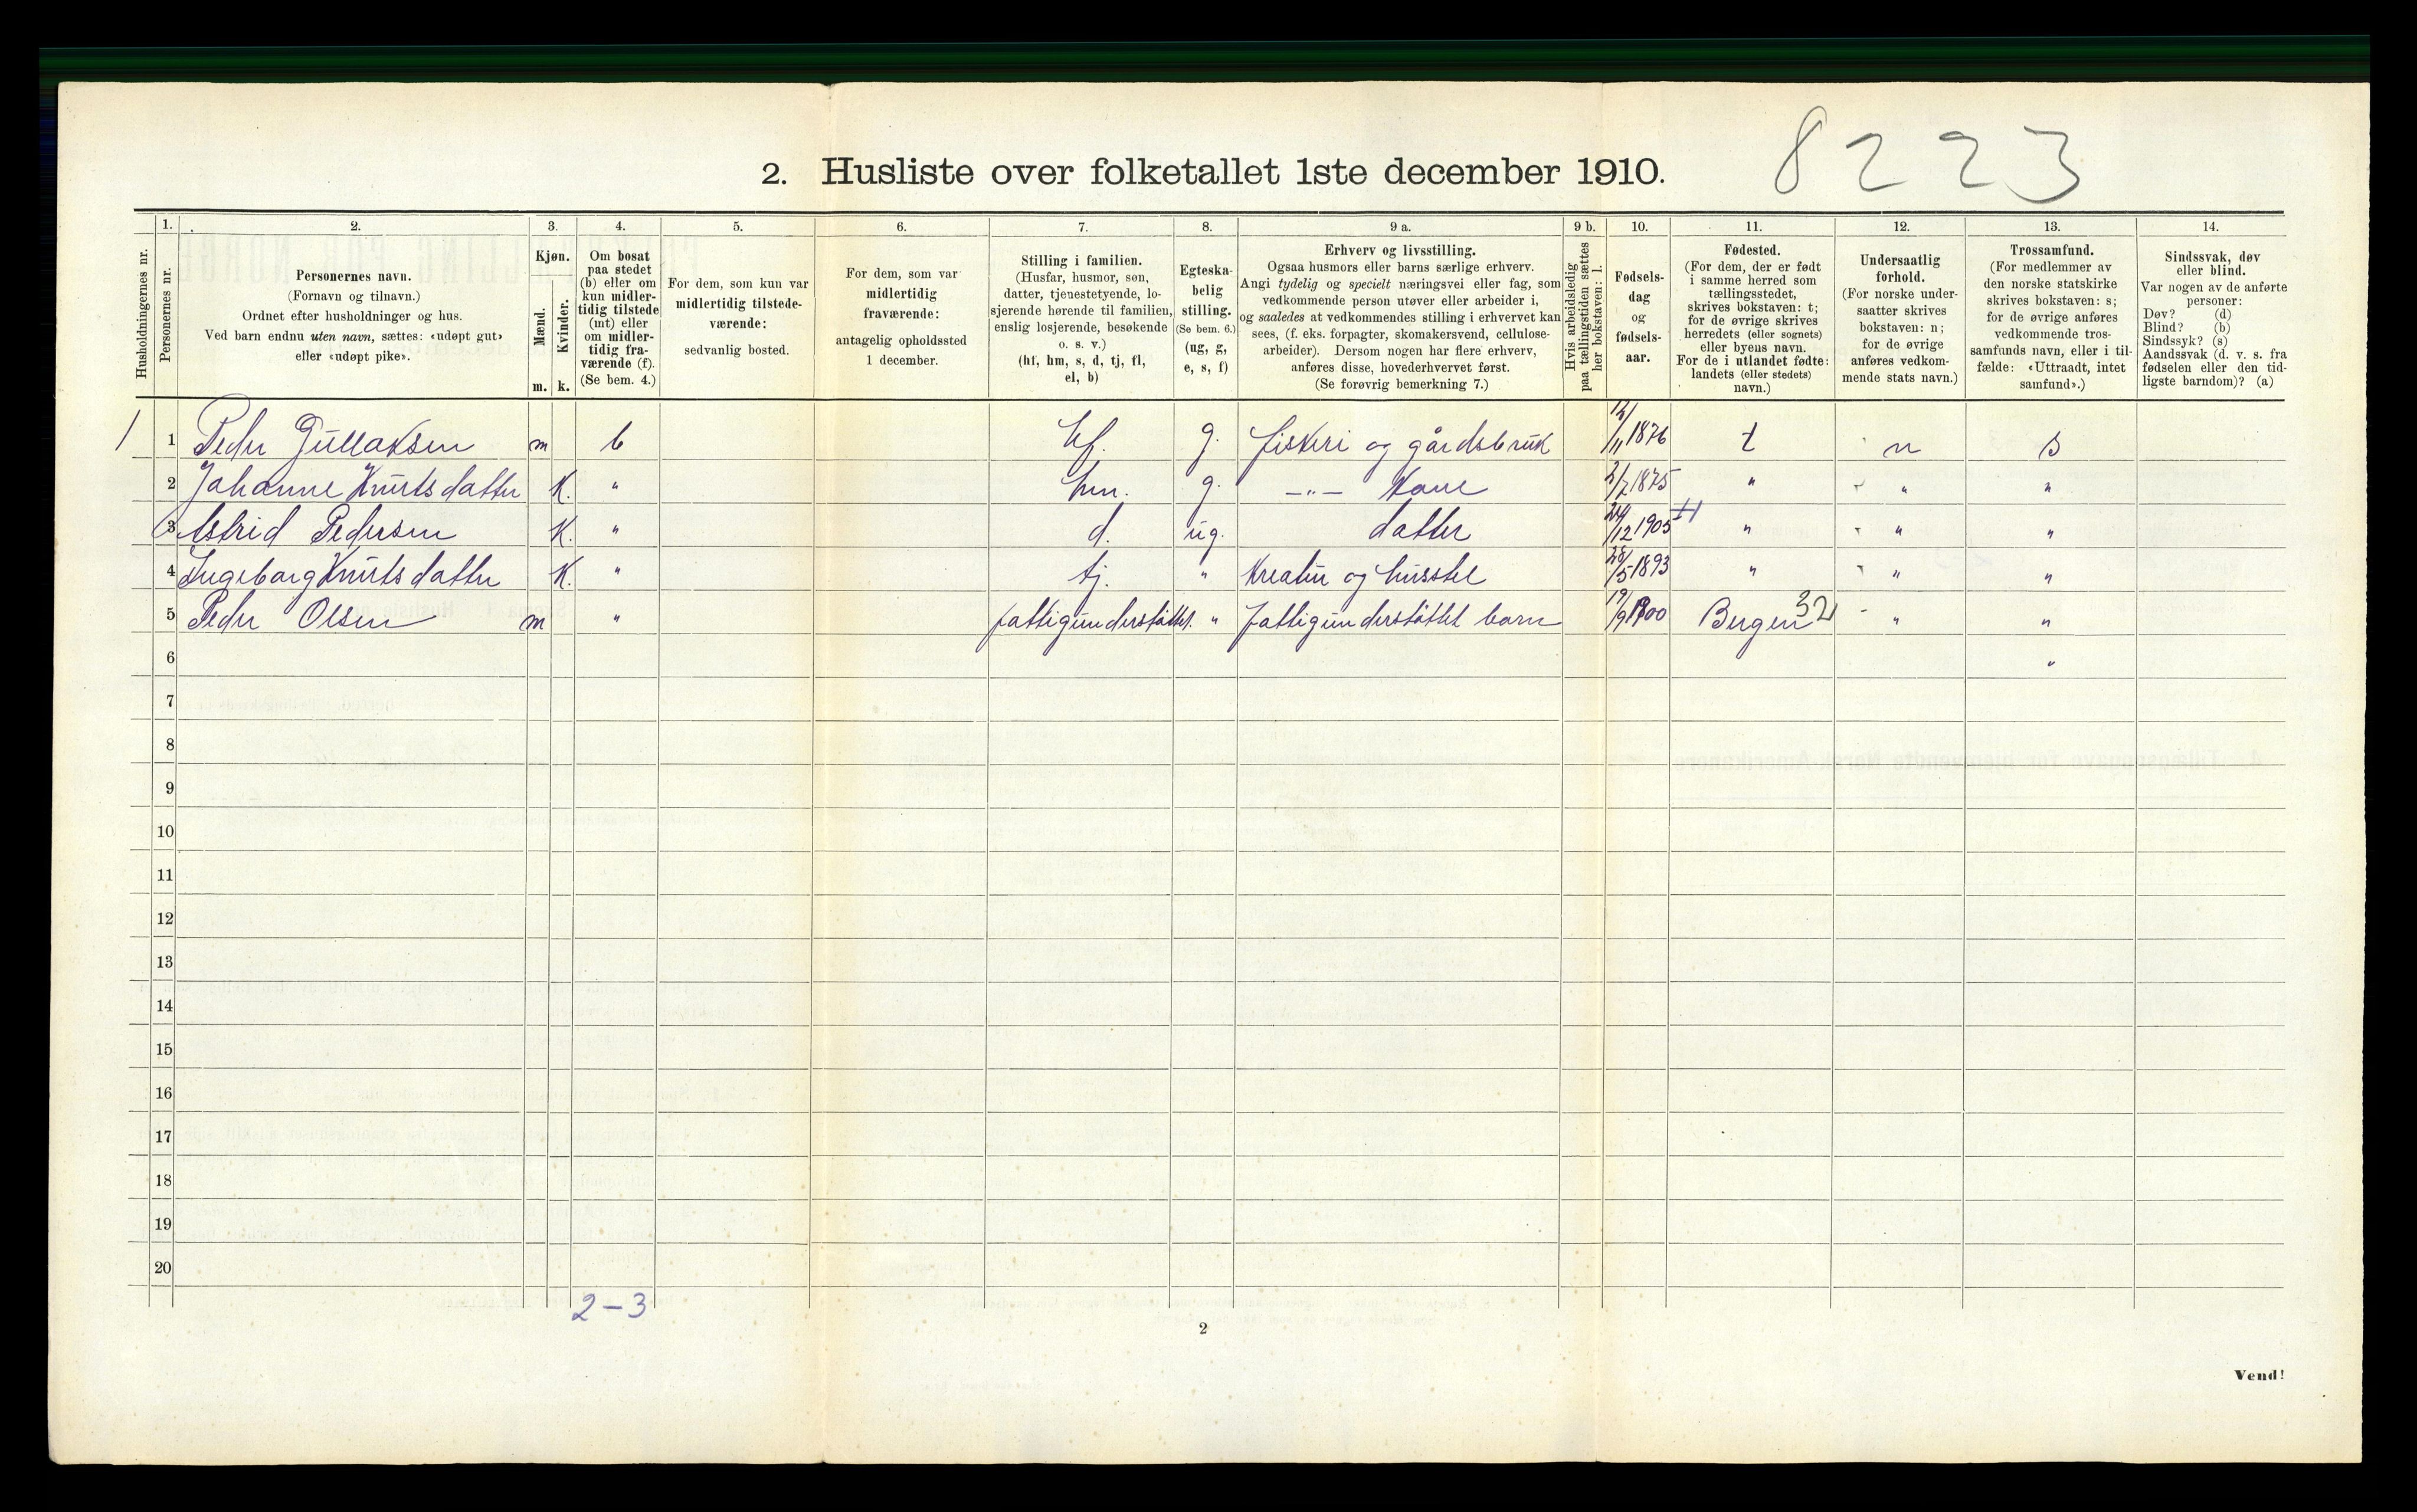 8223
2. Husliste over folketallet 1ste december 1910.
Husholdningernes nr.
1.
Personernes nr.
2.
Personernes navn.
(Fornavn og tilnavn.)
Ordnet efter husholdninger og hus.
Ved barn endnu uten navn, sættes: «udøpt gut»
eller «udøpt pike».
3.
Kjøn.
Mænd.
Kvinder.
m. k.
4.
Om bosat
paa stedet
(b) eller om
kun midler-
tidig tilstede
(mt) eller
om midler-
tidig fra-
værende (f).
(Se bem. 4.)
5.
For dem, som kun var
midlertidig tilstede-
værende:
sedvanlig bosted.
6.
For dem, som var
midlertidig
fraværende:
antagelig opholdssted
1 december.
7.
Stilling i familien.
(Husfar, husmor, søn,
datter, tjenestetyende, lo-
sjerende hørende til familien,
enslig losjerende, besøkende
o. s. v.)
(hf, hm, s, d, tj, fl,
el, b)
8.
Egteska-
belig
stilling.
(Se bem. 6.)
(ug, g,
e, s, f)
9 a.
Erhverv og livsstilling.
Ogsaa husmors eller barns særlige erhverv.
Angi tydelig og specielt næringsvei eller fag, som
vedkommende person utøver eller arbeider i,
og saaledes at vedkommendes stilling i erhvervet kan
sees, (f. eks. forpagter, skomakersvend, cellulose-
arbeider). Dersom nogen har flere erhverv,
anføres disse, hovederhvervet først.
(Se forøvrig bemerkning 7.)
9 b.
Hvis arbeidsledig
paa tællingstiden sættes
her bokstaven: l.
10.
Fødsels-
dag
og
fødsels-
aar.
11.
Fødested.
(For dem, der er født
i samme herred som
tællingsstedet,
skrives bokstaven: t;
for de øvrige skrives
herredets (eller sognets)
eller byens navn.
For de i utlandet fødte:
landets (eller stedets)
navn.)
12.
Undersaatlig
forhold.
(For norske under-
saatter skrives
bokstaven: n;
for de øvrige
anføres vedkom-
mende stats navn.)
13.
Trossamfund.
(For medlemmer av
den norske statskirke
skrives bokstaven: s;
for de øvrige anføres
vedkommende tros-
samfunds navn, eller i til-
fælde: «Uttraadt, intet
samfund».)
14.
Sindssvak, døv
eller blind.
Var nogen av de anførte
personer:
Døv? (d)
Blind? (b)
Sindssyk? (s)
Aandssvak (d. v. s. fra
fødselen eller den tid-
ligste barndom)? (a)
1 1 Peder Gullaksen m b hf. g. fiskeri og gårdsbruk /11 1876 t n s
2 Johanne Knutsdatter K. " hm. g. —"— Kone 2/7 1875 " " "
3 Astrid Pedersen K. " d. ug. datter 24/12 1905 " " "
4 Ingeborg Knutsdatter K. " tj. " Kreatur og husstel 28/5 1893 " " "
5 Peder Olsen m " fattigunderstøttet. " fattigunderstøttet barn 19/9 1900 Bergen 32 " "
6 "
7
8
9
10
11
12
13
14
15
16
17
18
19
20
2-3
2
Vend!